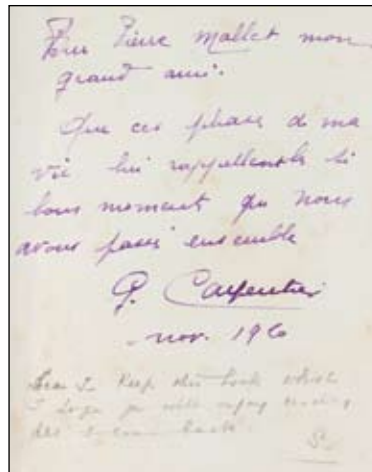 Pour Pierre Mallet mon
grand ami.
Que ces phases de ma
vie lui rappellent le si
bons moment que nous
avons passé ensemble
G. Carpentier
nov. 1920
Keep this book which
I hope you will enjoy reading